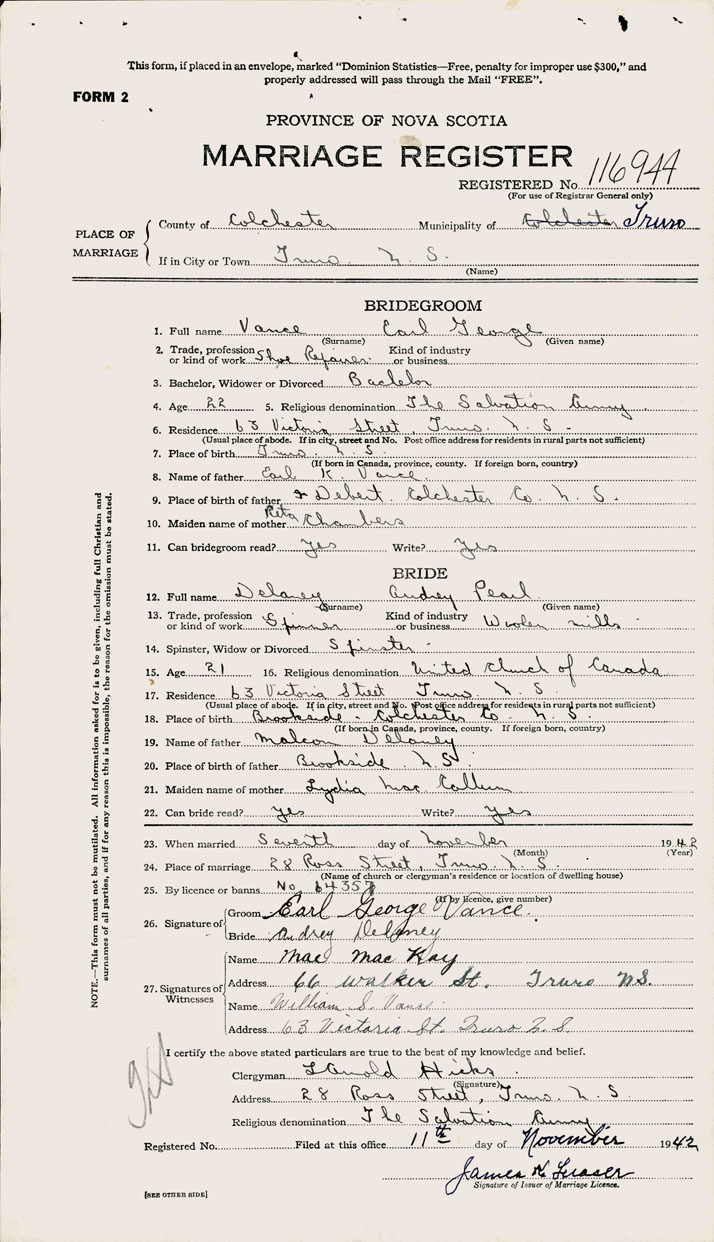 This form, if placed in an envelope, marked "Dominion Statistics—Free, penalty for improper use $300," and
properly addressed will pass through the Mail "FREE".
FORM 2
PROVINCE OF NOVA SCOTIA
MARRIAGE REGISTER
REGISTERED No. 116944
(For use of Registrar General only)
PLACE OF MARRIAGE
County of Colchester Municipality of Colchester Truro
If in City or Town Truro N. S.
(Name)
BRIDEGROOM
1. Full name Vance Earl George
(Surname) (Given name)
2. Trade, profession or kind of work Shoe Repairer Kind of industry or business
3. Bachelor, Widower or Divorced Bachelor
4. Age 22 5. Religious denomination The Salvation Army
6. Residence 63 Victoria Street, Truro N. S.
(Usual place of abode. If in city, street and No. Post office address for residents in rural parts not sufficient)
7. Place of birth Truro N. S.
(If born in Canada, province, county. If foreign born, country)
8. Name of father Earl K. Vance
9. Place of birth of father Debert Colchester Co. N. S.
10. Maiden name of mother Reta Chambers
11. Can bridegroom read? Yes Write? Yes
BRIDE
12. Full name Delaney Audrey Pearl
(Surname) (Given name)
13. Trade, profession or kind of work Spinner Kind of industry or business Woolen mills
14. Spinster, Widow or Divorced Spinster
15. Age 21 16. Religious denomination United Church of Canada
17. Residence 63 Victoria Street Truro N. S.
(Usual place of abode. If in city, street and No. Post office address for residents in rural parts not sufficient)
18. Place of birth Brookside - Colchester Co N. S.
(If born in Canada, province, county. If foreign born, country)
19. Name of father Malcom Delaney
20. Place of birth of father Brookside N. S.
21. Maiden name of mother Lydia Mac Callum
22. Can bride read? yes Write? yes
23. When married Seventh day of November 1942
(Month) (Year)
24. Place of marriage 28 Ross Street, Truro N. S.
(Name of church or clergyman's residence or location of dwelling house)
25. By licence or banns No.
(If by licence, give number)
26. Signature of
Groom Earl George Vance.
Bride Audrey Delaney
27. Signatures of Witnesses
Name Mae Mac Kay
Address 66 Walker St. Truro N.S.
Name William S. Vanse
Address 63 Victoria St. Truro N.S
I certify the above stated particulars are true to the best of my knowledge and belief.
Clergyman Hicks
(Signature)
Address 28 Ross Street, Truro N. S.
Religious denomination The Salvation Army
Registered No. Filed at this office 11th day of November 1942
James H Fraser
Signature of Issuer of Marriage Licence.
[SEE OTHER SIDE]
NOTE.—This form must not be mutilated. All information asked for is to be given, including full Christian and
surnames of all parties, and if for any reason this is impossible, the reason for the omission must be stated.